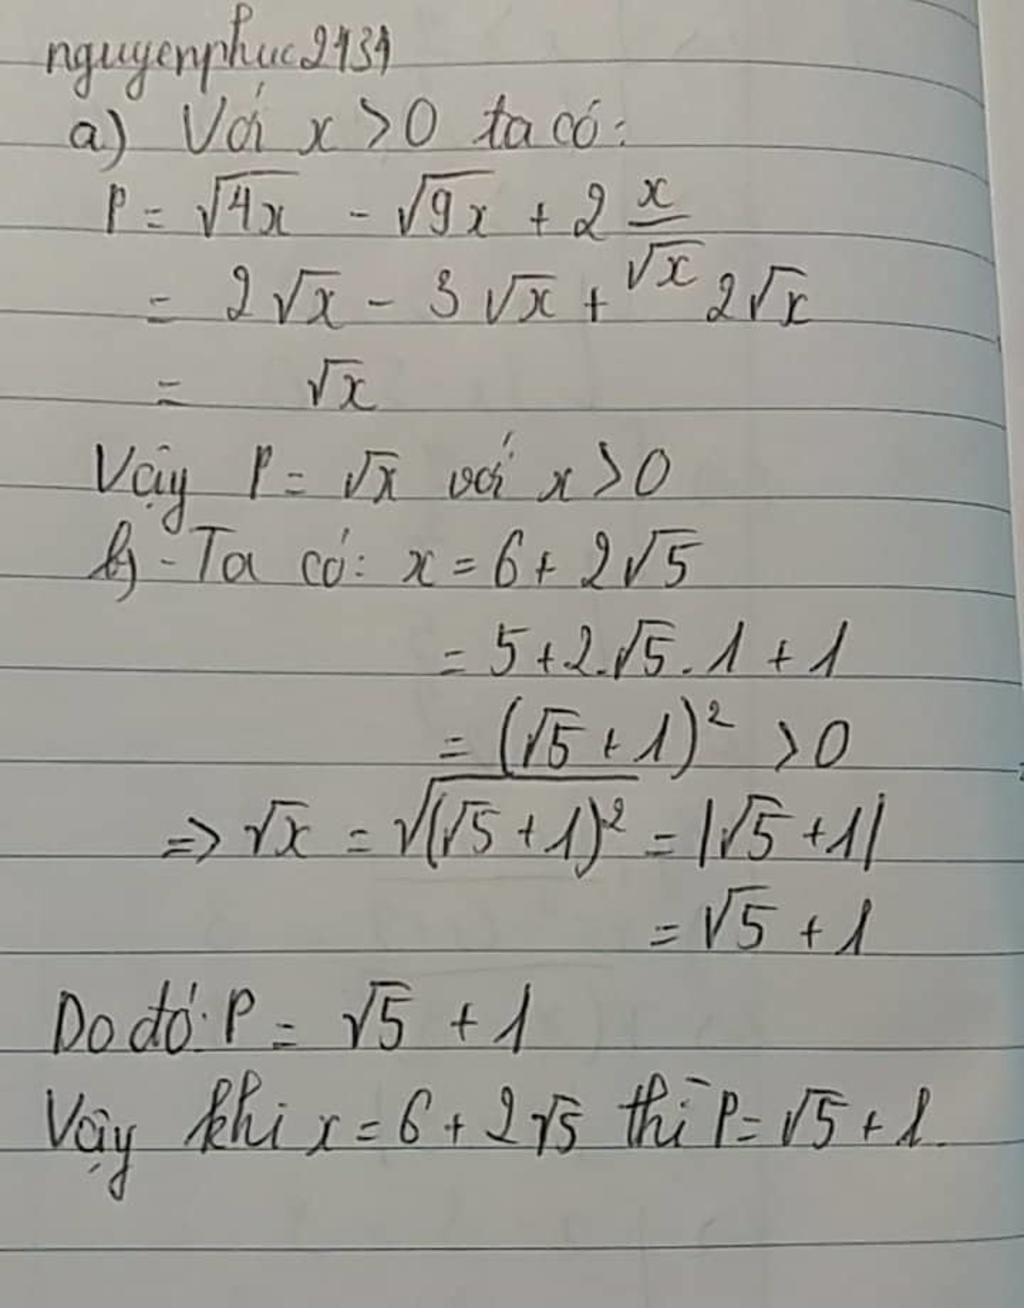 nguyenphuc2434
a) Với x > 0 ta có:
P = √4x - √9x + 2 x/√x
= 2√x - 3√x + 2√x
= √x
Vậy P = √x với x > 0
b) - Ta có: x = 6 + 2√5
= 5 + 2.√5.1 + 1
= (√5 + 1)² > 0
=> √x = √(√5 + 1)² = |√5 + 1|
= √5 + 1
Do đó: P = √5 + 1
Vậy khi x = 6 + 2√5 thì P = √5 + 1.